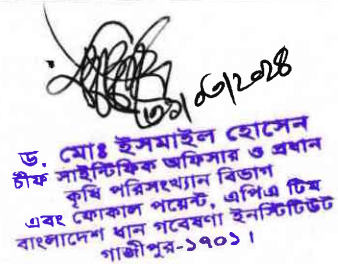 ৩১/০৩/২০২৪
ড. মোঃ ইসমাইল হোসেন
চীফ সাইন্টিফিক অফিসার ও প্রধান
কৃষি পরিসংখ্যান বিভাগ
এবং ফোকাল পয়েন্ট, এপিএ টিম
বাংলাদেশ ধান গবেষণা ইনস্টিটিউট
গাজীপুর-১৭০১।